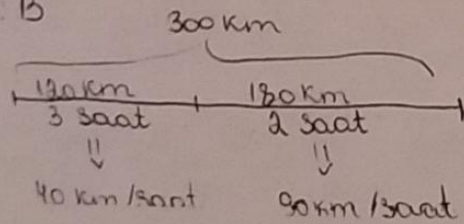 B
300 km
120 km 180 km
3 saat 2 saat
⇓ ⇓
40 km/saat 90 km/saat